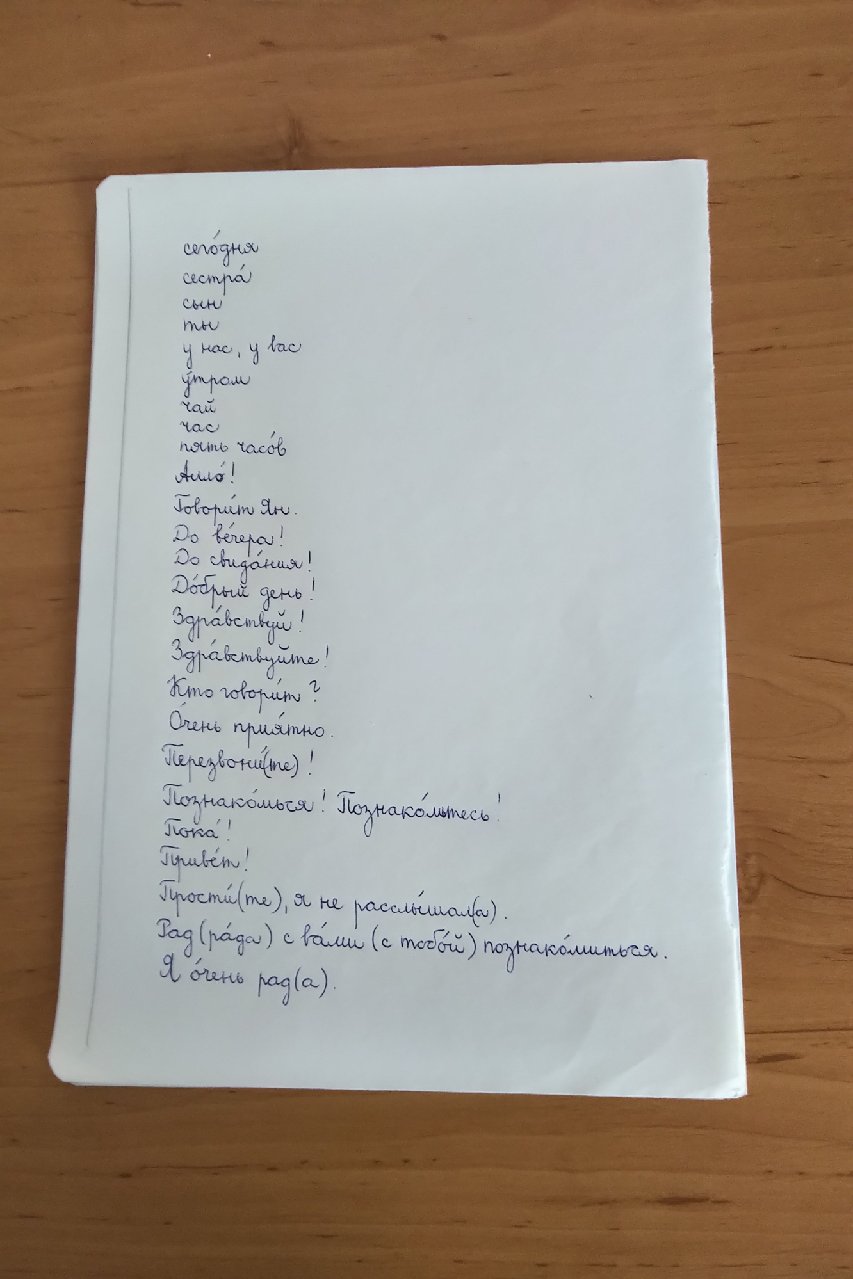 сего́дня
сестра́
сын
ты
у нас, у вас
у́тром
чай
час
пять часо́в
Алло́!
Говори́т Ян.
До ве́чера!
До свида́ния!
До́брый день!
Здра́вствуй!
Здра́вствуйте!
Кто говори́т?
О́чень прия́тно.
Перезвони́(те)!
Познако́мься! Познако́мьтесь!
Пока́!
Приве́т!
Прости́(те), я не расслы́шал(а).
Рад (ра́да) с ва́ми (с тобо́й) познако́миться.
Я о́чень рад(а).